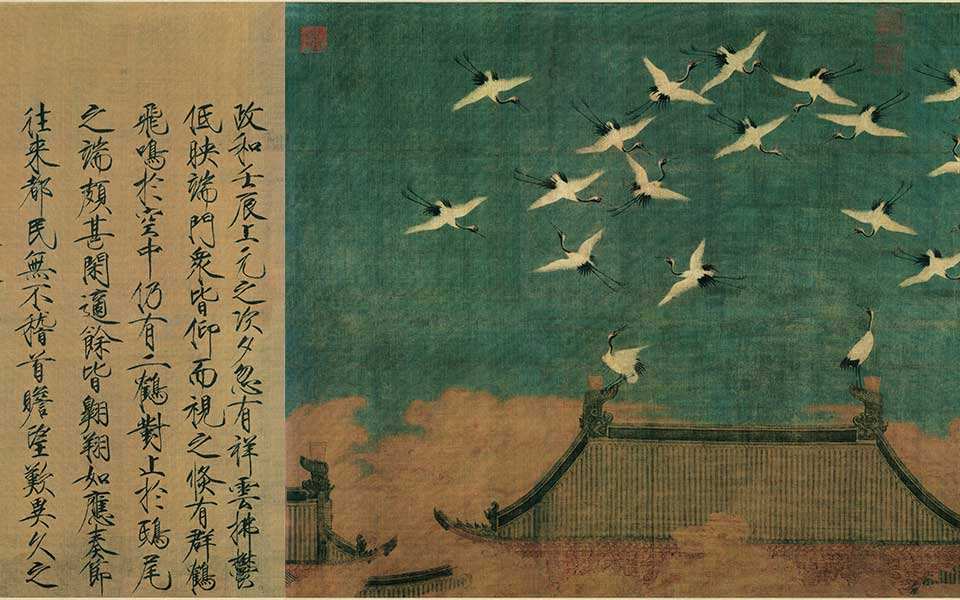 政和壬辰上元之次夕忽有祥雲拂鬱
低映端門衆皆仰而視之倐有群鶴
飛鳴於空中仍有二鶴對止於鴟尾
之端頗甚閑適餘皆翱翔如應奏節
往来都民無不稽首瞻望歎異久之